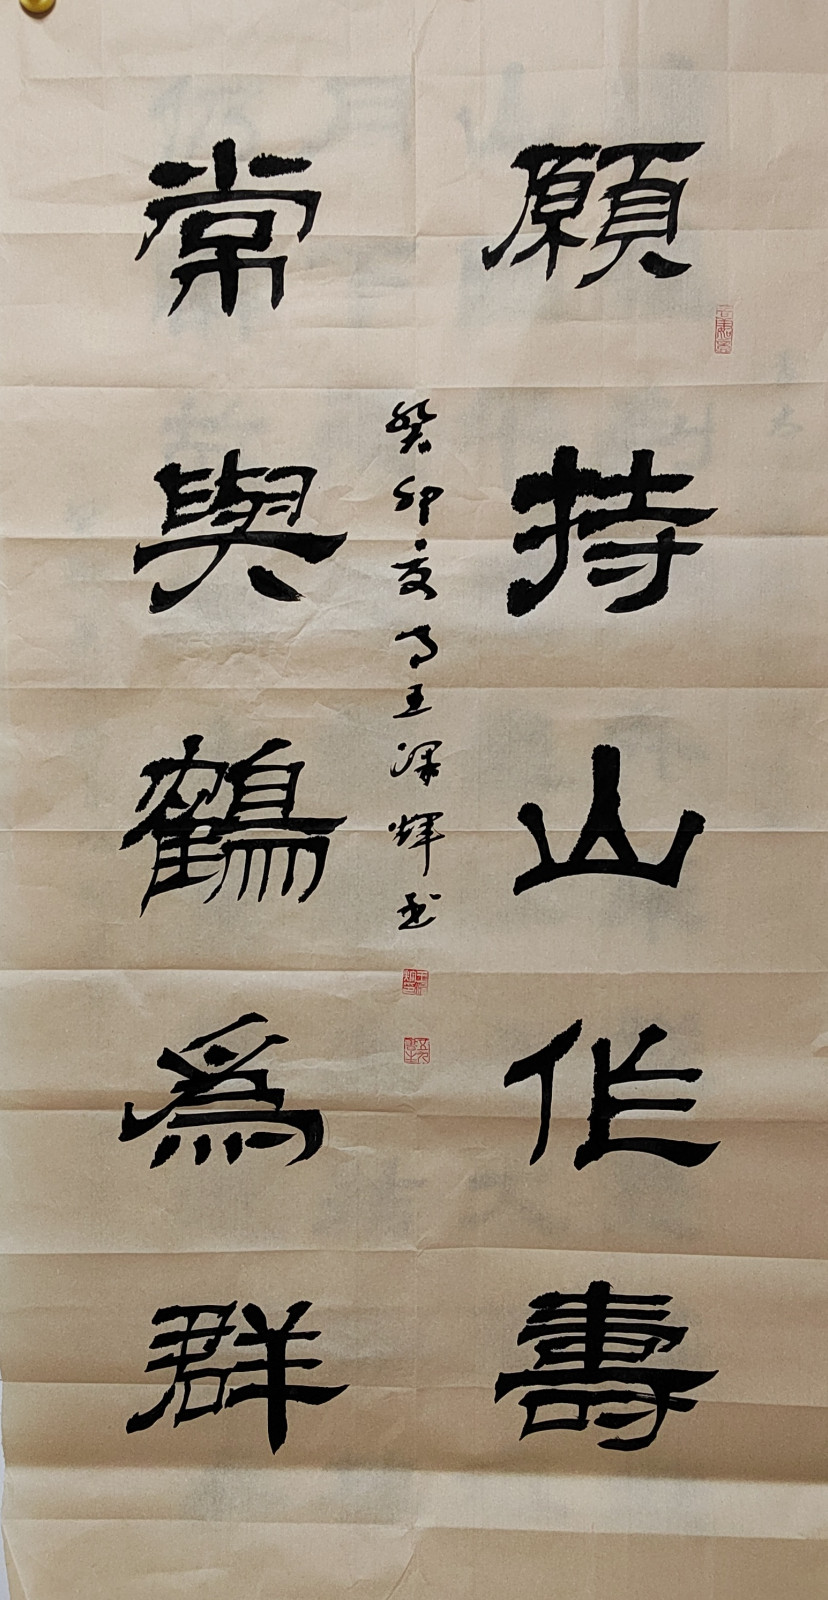 願持山作壽
常與鶴為群
癸卯夏月王深輝書